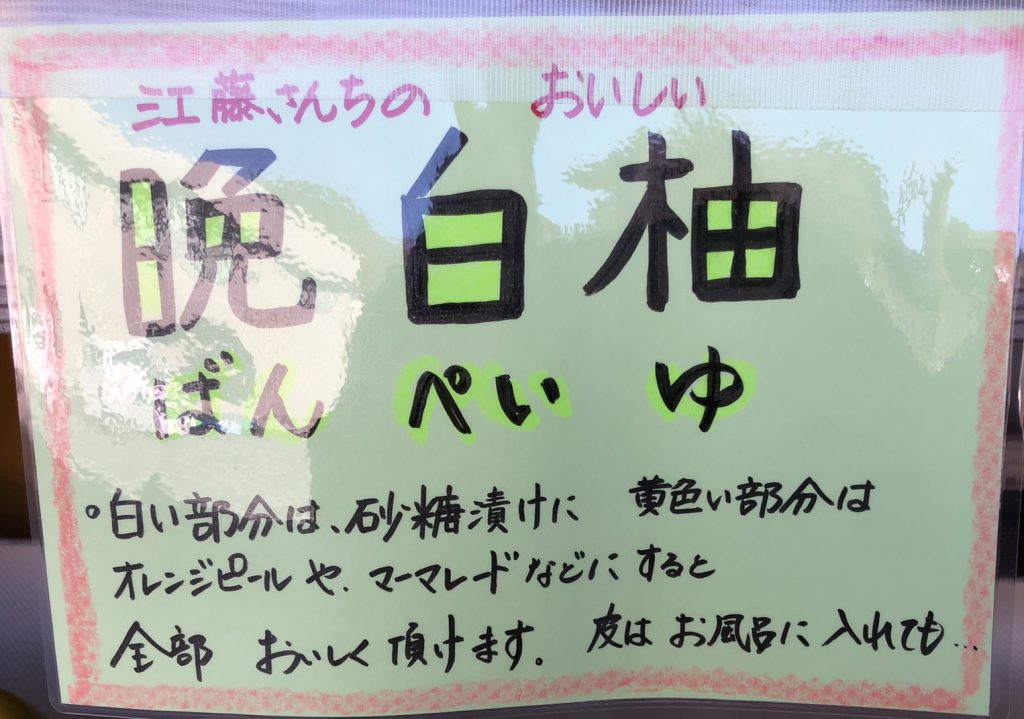 江藤さんちの おいしい
晩白柚
ばんぺいゆ
。白い部分は、砂糖漬けに 黄色い部分は
オレンジピールや、マーマレードなどにすると
全部 おいしく頂けます。 皮はお風呂に入れても…